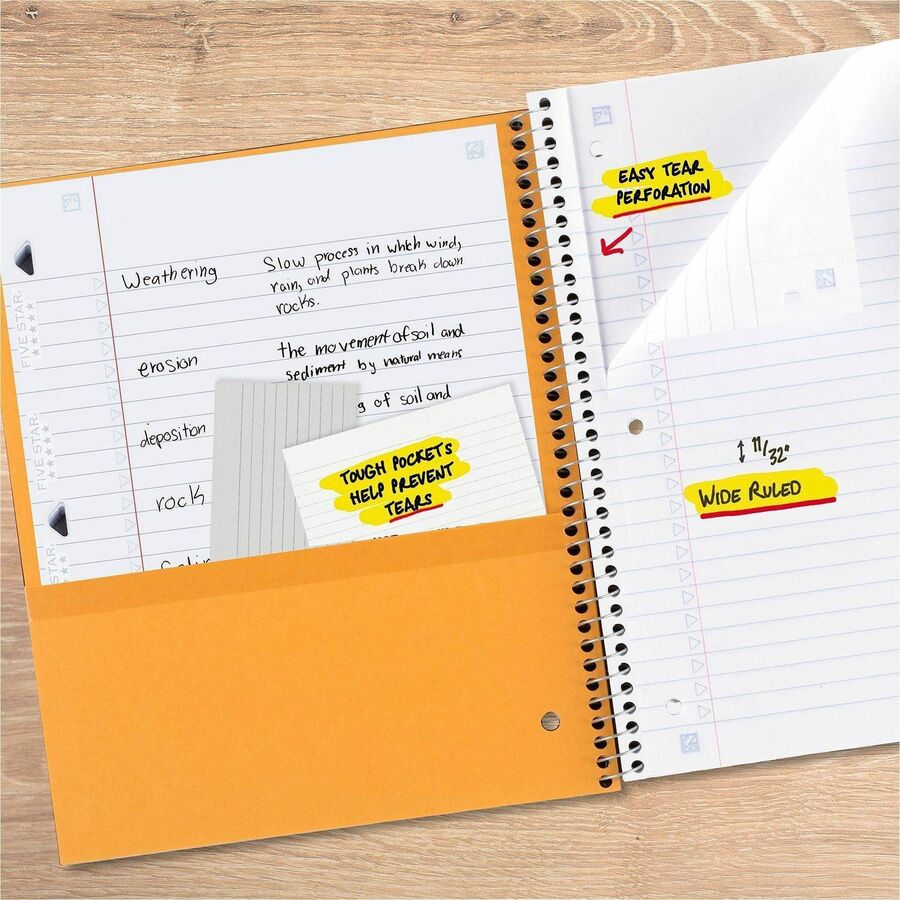 Weathering
Slow process in which wind,
rain, and plants break down
rocks.
erosion
the movement of soil and
sediment by natural means
deposition
of soil and
rock
TOUGH POCKETS
HELP PREVENT
TEARS
FIVE STAR.
FIVE STAR.
FIVE STAR.
EASY TEAR
PERFORATION
11/32"
WIDE RULED